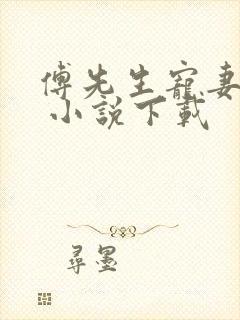 傅先生寵妻
小說下載
尋墨